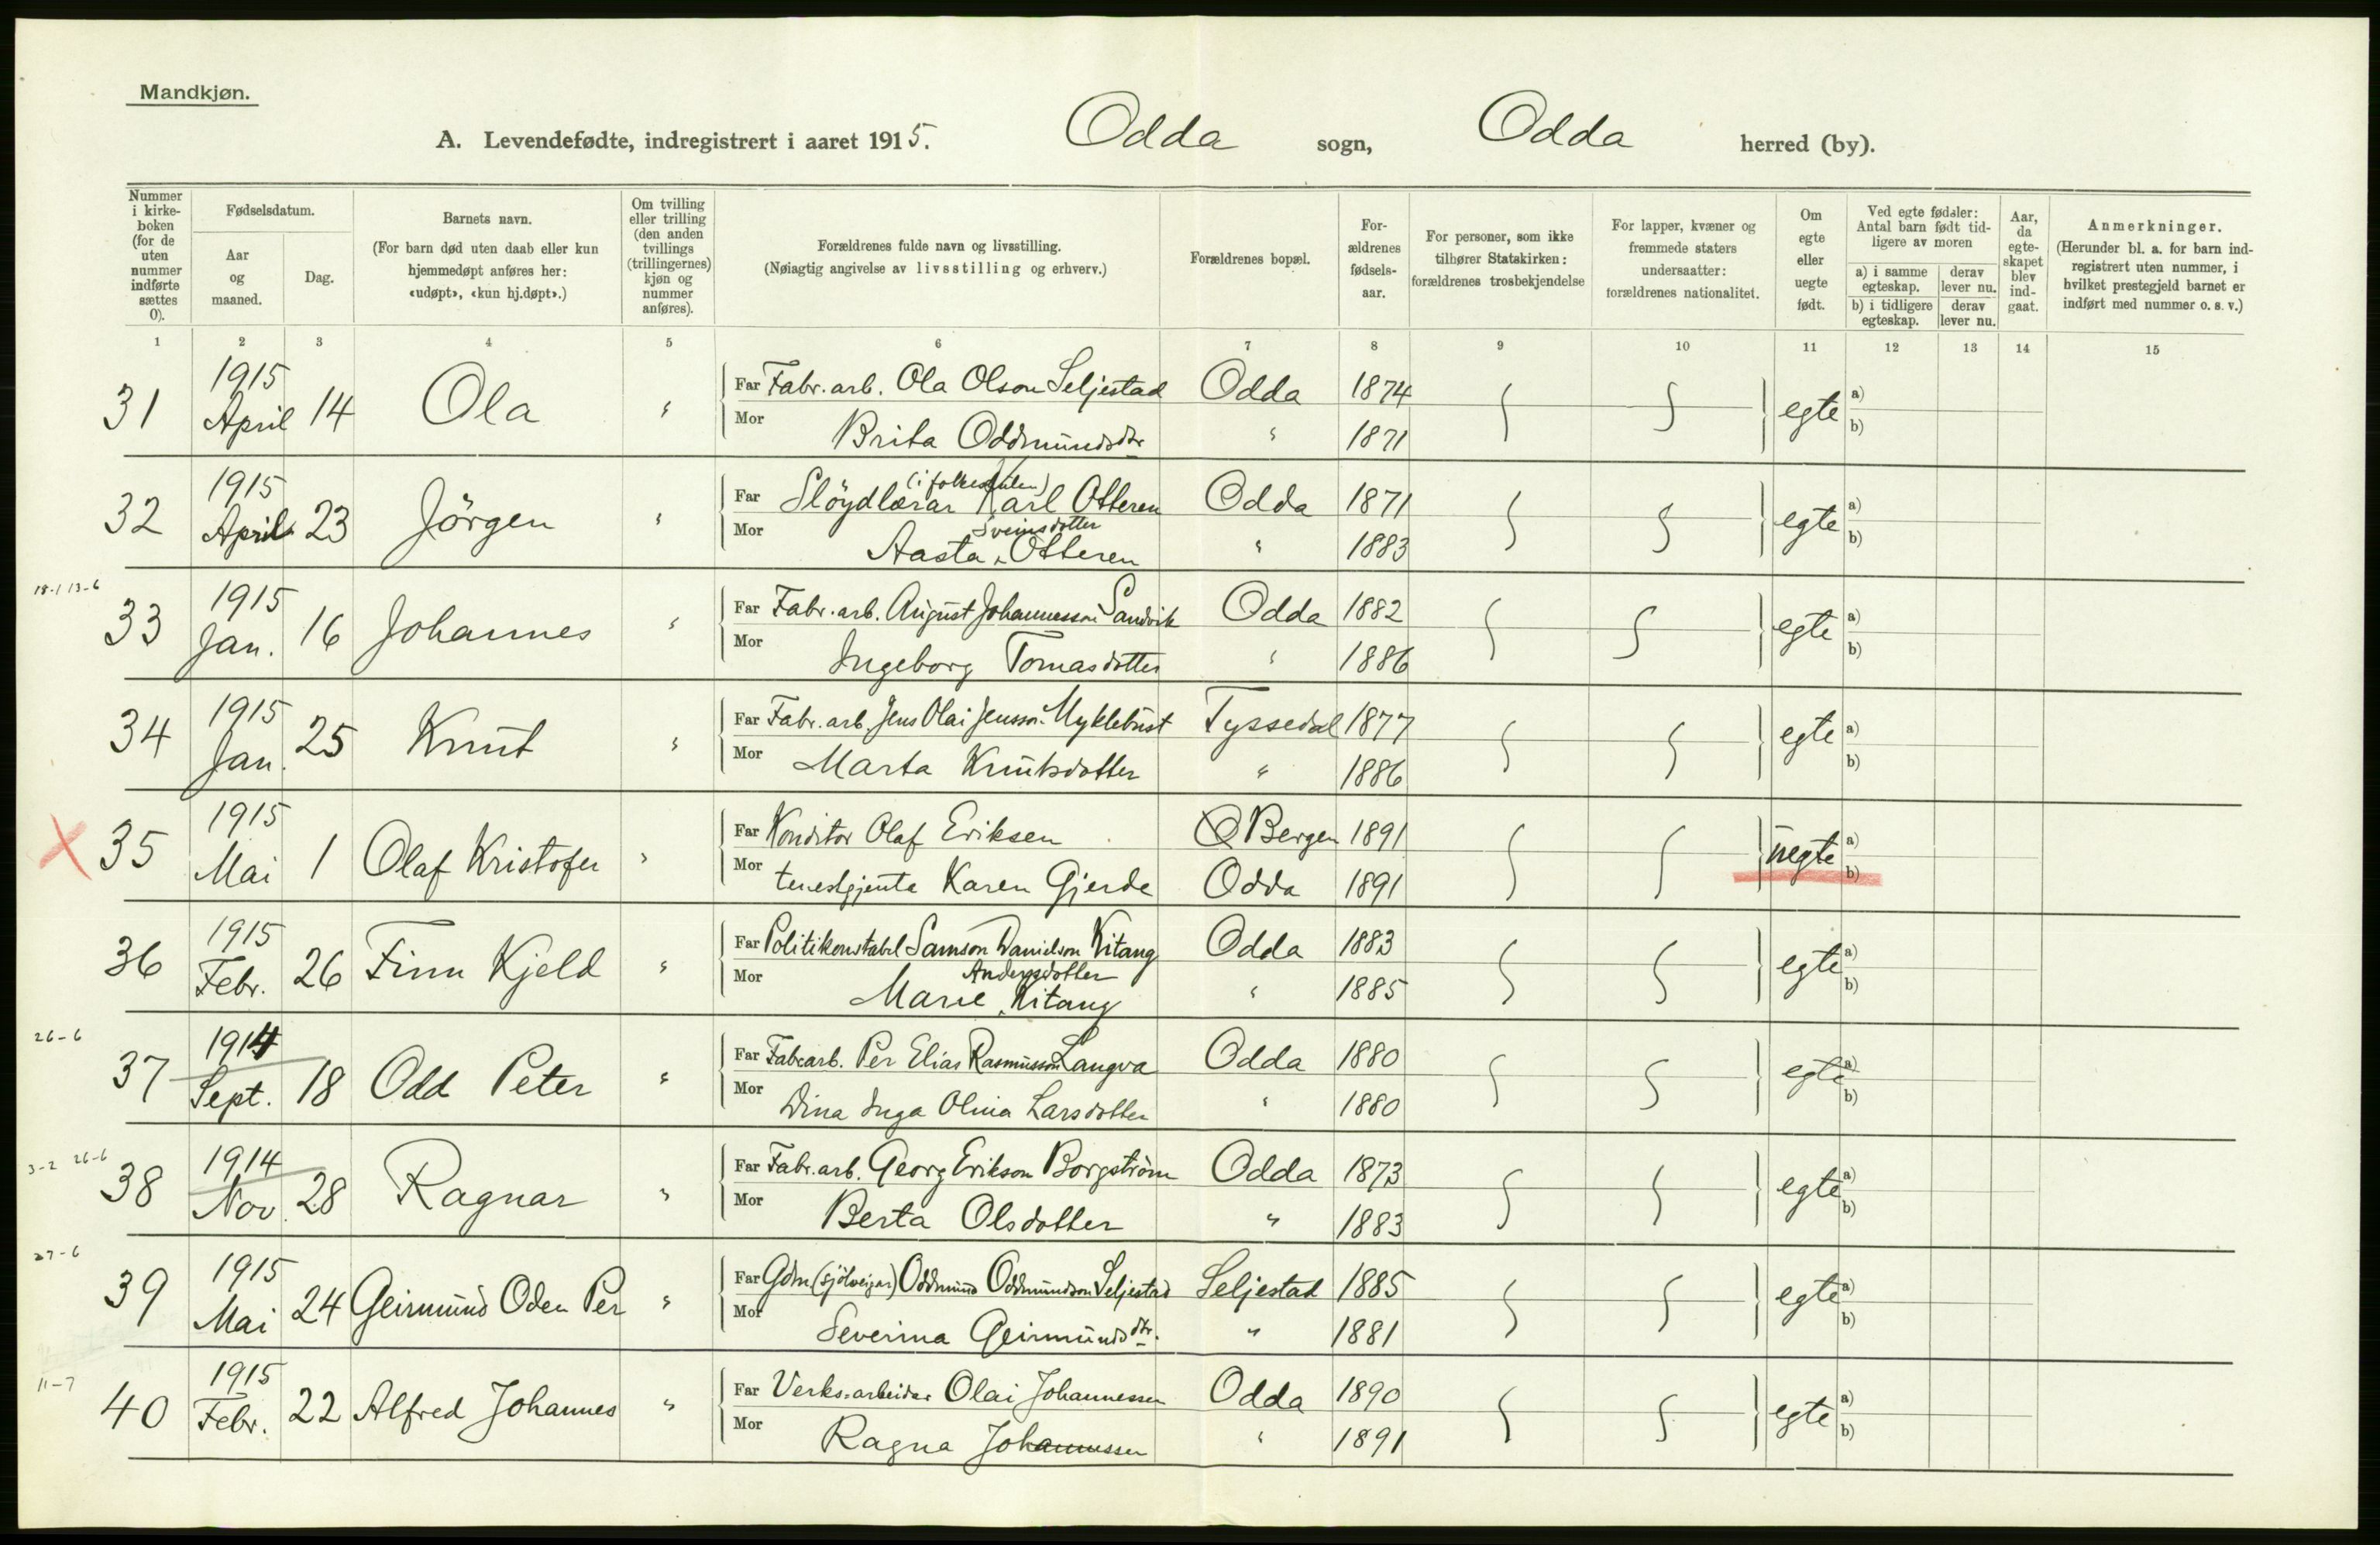 Mandkjøn.
A. Levendefødte, indregistrert i aaret 1915. Odda sogn, Odda herred (by).
Nummer i kirke-boken (for de uten nummer indførte sættes 0).
Fødselsdatum.
Aar og maaned.
Dag.
Barnets navn.
(For barn død uten daab eller kun hjemmedøpt anføres her: «udøpt», «kun hj.døpt».)
Om tvilling eller trilling (den anden tvillings (trillingernes) kjøn og nummer anføres).
Forældrenes fulde navn og livsstilling.
(Nøiagtig angivelse av livsstilling og erhverv.)
Forældrenes bopæl.
For-ældrenes fødsels-aar.
For personer, som ikke tilhører Statskirken: forældrenes trosbekjendelse
For lapper, kvæner og fremmede staters undersaatter: forældrenes nationalitet.
Om egte eller uegte født.
Ved egte fødsler: Antal barn født tid-ligere av moren
a) i samme egteskap.
derav lever nu.
b) i tidligere egteskap.
derav lever nu.
Aar, da egte-skapet blev ind-gaat.
Anmerkninger.
(Herunder bl. a. for barn ind-registrert uten nummer, i hvilket prestegjeld barnet er indført med nummer o. s. v.)
1 2 3 4 5 6 7 8 9 10 11 12 13 14 15
31 1915 April 14 Ola " Far Fabr. arb. Ola Olson Seljestad Odda 1874 egte a)
Mor Brita Oddmundsdtr " 1871 b)
32 1915 April 23 Jörgen " Far Slöydlærar (i folkeskulen) Karl Otteren Odda 1871 egte a)
Mor Aasta Sveinsdotter Otteren " 1883 b)
18-1 13-6
33 1915 Jan. 16 Johannes " Far Fabr. arb. August Johannesson Sandvik Odda 1882 egte a)
Mor Ingeborg Tomasdotter " 1886 b)
34 1915 Jan. 25 Knut " Far Fabr. arb. Jens Olai Jensson Myklebust Tyssedal 1877 egte a)
Mor Marta Knutsdotter " 1886 b)
35 1915 Mai 1 Olaf Kristofer " Far Konditor Olaf Eriksen Bergen 1891 uegte a)
Mor tenestgjente Karen Gjerde Odda 1891 b)
36 1915 Febr. 26 Finn Kjeld " Far Politikonstabel Samson Danielson Kitang Odda 1883 egte a)
Mor Marie Andersdotter Kitang " 1885 b)
26-6
37 1914 Sept. 18 Odd Peter " Far Fabr.arb. Per Elias Rasmusson Langva Odda 1880 egte a)
Mor Dina Inga Olina Larsdotter " 1880 b)
3-2 26-6
38 1914 Nov. 28 Ragnar " Far Fabr. arb. Georg Erikson Borgström Odda 1873 egte a)
Mor Berta Olsdotter " 1883 b)
27-6
39 1915 Mai 24 Geirmund Oden Per " Far Gdm (sjölveigar) Oddmund Oddmundson Seljestad Seljestad 1885 egte a)
Mor Severina Geirmundsdtr. " 1881 b)
11-7
40 1915 Febr. 22 Alfred Johannes " Far Verks-arbeidar Olai Johannessen Odda 1890 egte a)
Mor Ragna Johannessen " 1891 b)